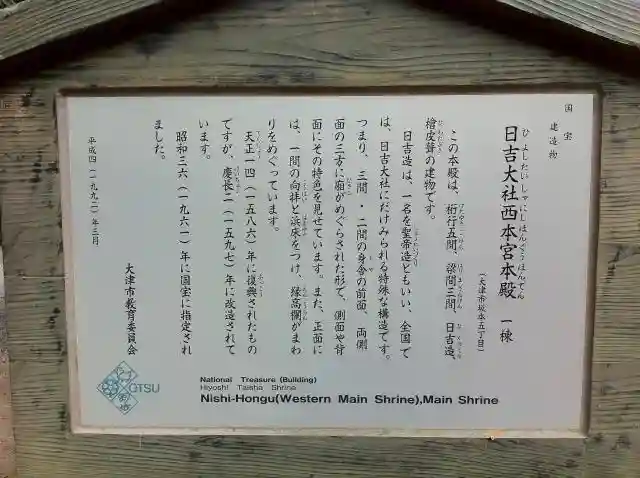 国宝
建造物
日吉大社西本宮本殿 一棟
ひよしたいしゃにしほんぐうほんでん
(大津市坂本五丁目)
この本殿は、桁行五間、梁間三間 日吉造、
檜皮葺の建物です。
日吉造は、一名を聖帝造ともいい、全国で
は、日吉大社にだけみられる特殊な構造です。
つまり、三間・二間の身舎の前面、両側
面の三方に廂がめぐらされた形で、側面や背
面にその特色を見せています。また、正面に
は、一間の向拝と浜床をつけ、縁高欄がまわ
りをめぐっています。
天正一四(一五八六)年に復興されたもの
ですが、慶長二(一五九七)年に改造されて
います。
昭和三六(一九六一)年に国宝に指定され
ました。
平成四(一九九二)年三月
大津市教育委員会
OTSU
National Treasure (Building)
Hiyoshi Taisha Shrine
Nishi-Hongu(Western Main Shrine),Main Shrine